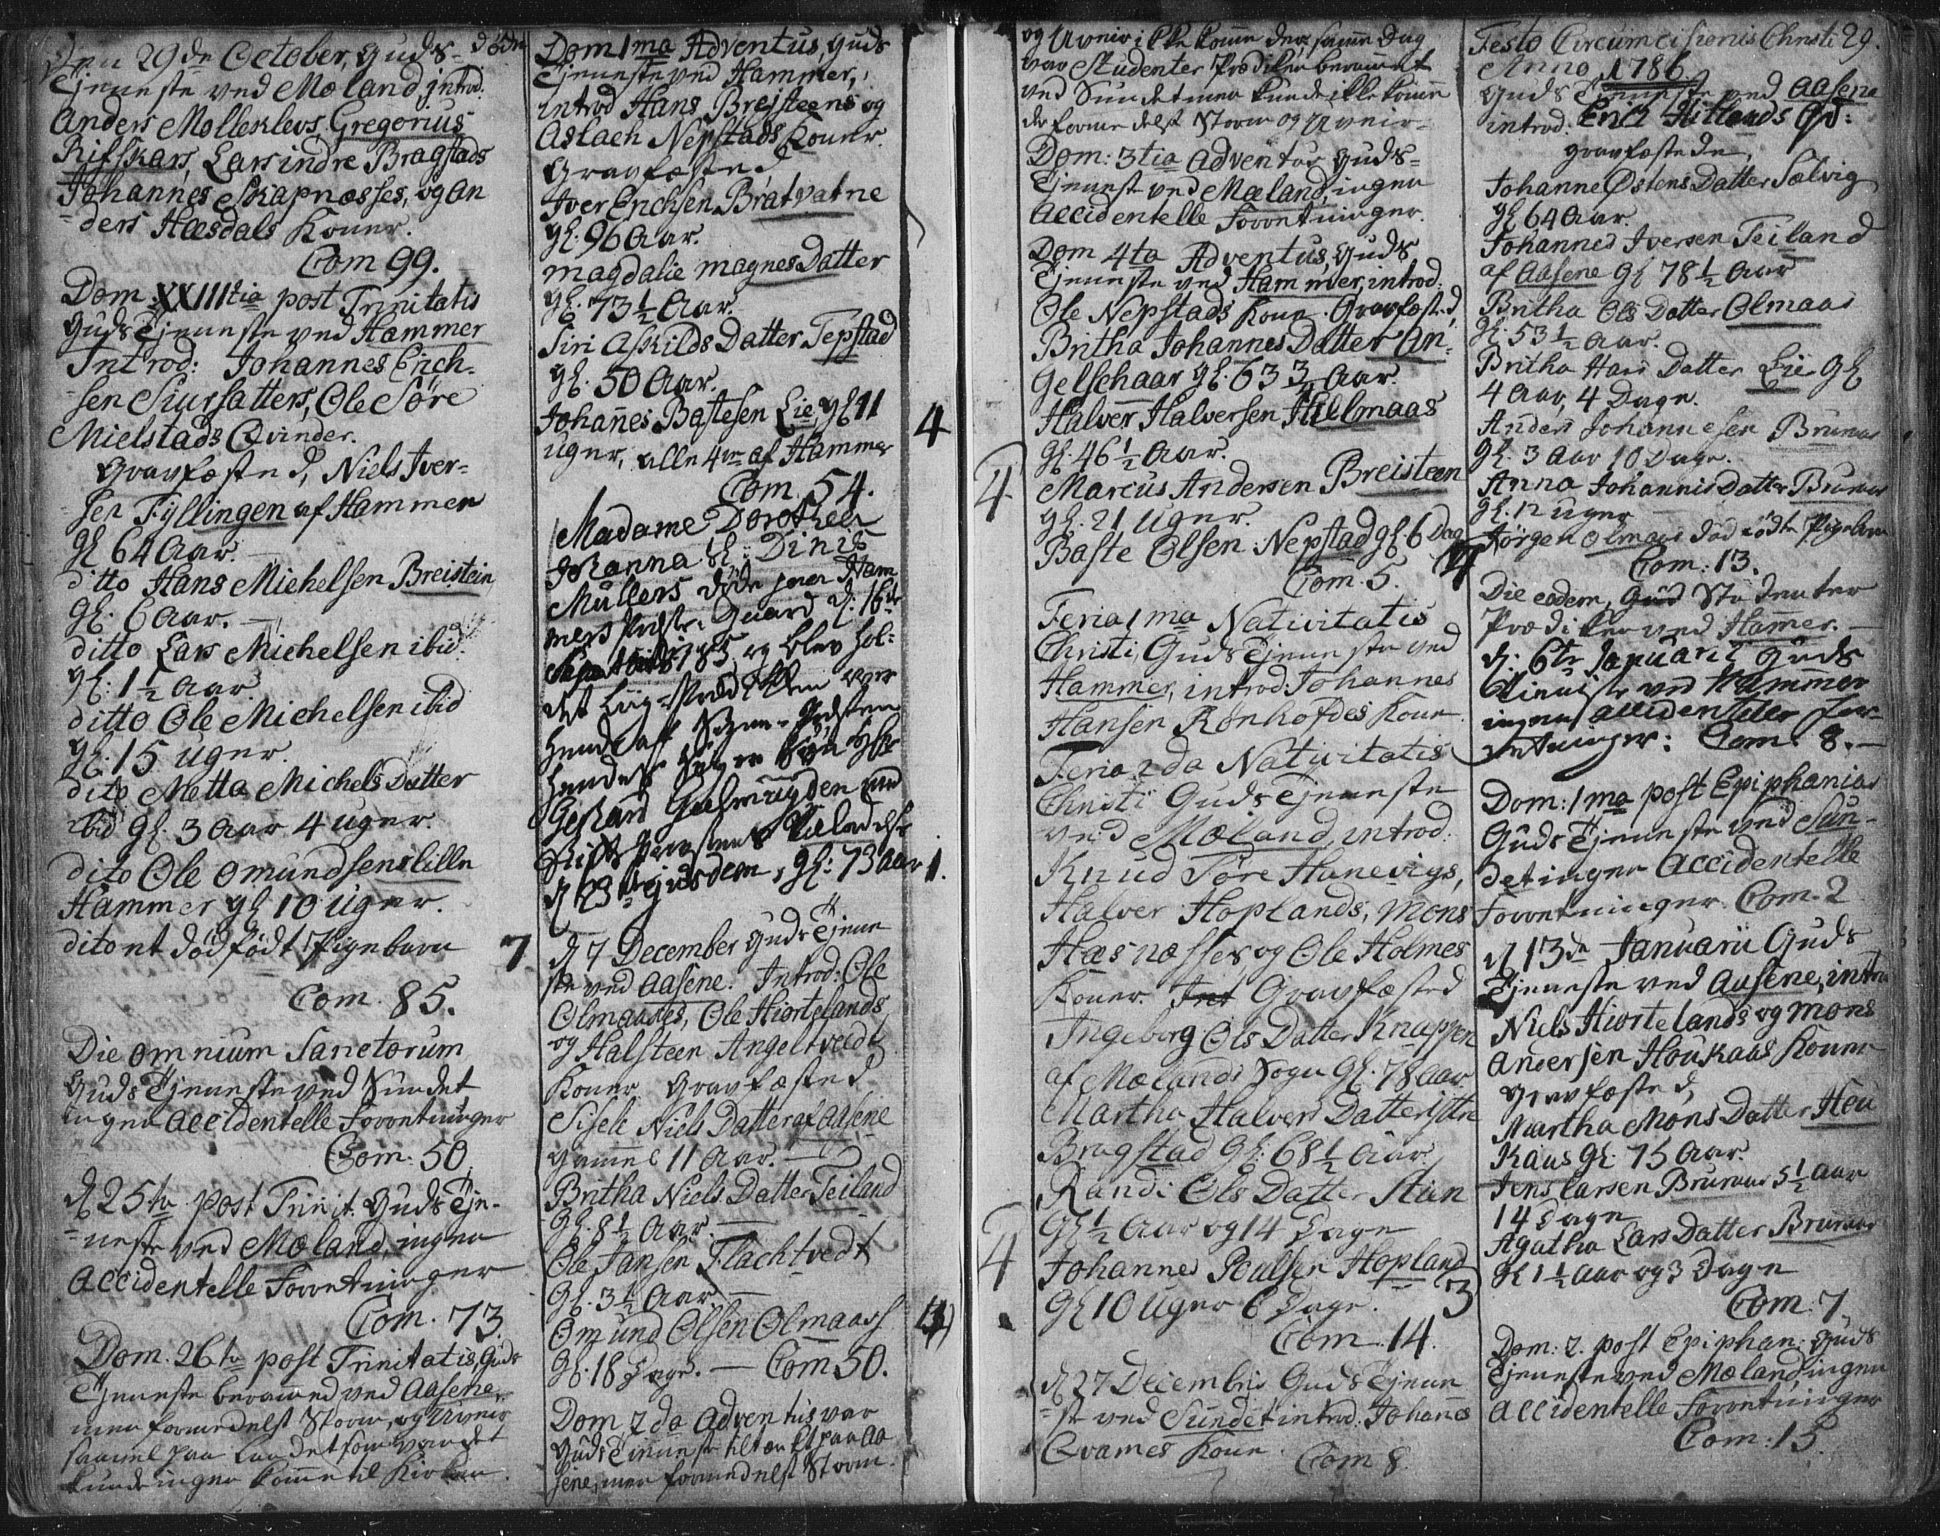 Den 29de October, Guds- døde
Tjeneste ved Mæland, introd.
Anders Molleklevs, Gregorius
Rifskars, Lars indre Bragstads
Johannes Skapnæsses, og An
-ders Hæsdals Koner.
Com 99.
Dom XXIIItia post Trinitatis
Guds Tjeneste ved Hammer
Introd: Johannes Erich-
sen Siursatters, Ole Søre
Mielstads Qvinder.
Gravfæsted, Niels Iver-
sen Fyllingen af Hammer
gl 64 Aar.
ditto Hans Michelsen Breistein
gl: 6 Aar.
ditto Lars Michelsen ibid.
gl: 1 1/2 Aar
ditto Ole Michelsen ibid
gl: 15 Uger.
dito Metta Michels Datter
ibid gl. 3 Aar 4 uger.
dito Ole Omundsen lille
Hammer gl 10 Uger.
dito et dødfødt Pigebarn 7
Com. 85.
Die omnium Sanctorum
Guds Tjeneste ved Sundet
ingen accidentelle Forretninger
Com. 50
d 25te post Trinit. Guds Tje-
-neste ved Mæland, ingen
accidentelle Forretninger
Com. 73.
Dom. 26te post Trinitatis, Guds
Tjeneste berammed ved Aasene,
men formedelst Storm, og Uveir
saavel paa Landet som Vandet
kunde ingen komme til Kirken.
Dom 1ma Adventus, Guds
Tjeneste ved Hammer,
introd Hans Brejsteens og
Aslach Nepstads Koner.
Gravfæsted
Iver Erichsen Bratvatne
gl. 96 Aar.
magdalie magnes Datter
gl. 73 1/2 Aar.
Siri Askilds Datter Tepstad
gl. 50 Aar.
Johannes Bastesen Lie gl 11
uger, alle 4re af Hammer 4
Com. 54.
Madame Dorothea
Johanna Dinis
Müllers døde paa Ham
mers Præste-Gaard d: 16de
1785, og blev hol-
det Liig-Prædikken over
hende af Sogne-Præsten
hendes
Gerhard Geelmuyden med
Stifts Provstens Tilladelse
d 23de ejusdem, gl: 73 Aar 1.
d 7 December Guds Tjene
ste ved Aasene. Introd: Ole
Olmaases, Ole Hiortelands
og Halsteen Angeltveedts
Koner. Gravfæsted
Sisele Niels Datter af Aasene
gammel 11 Aar.
Britha Niels Datter Teiland
gl. 8 1/2 Aar.
Ole Jansen Flachtvedt
gl. 3 1/2 Aar.
Omund Olsen Olmaas
gl. 18 Dage. — Com 50.
Dom 2da Adventus var
Guds Tjeneste tiltænkt paa Aa
sene, men formedelst Storm
og Uveir ikke komme der, samme Dag
var Studenter Prædiken berammet
ved Sundet men kunde ikke komme
der formedelst Storm og Uveir.
Dom: 3tia Adventus Guds-
Tjenest ved Mæland, ingen
accidentelle Forretninger.
Dom 4ta Adventus, Guds
Tjeneste ved Hammer, introd:
Ole Nepstads Kone. Gravfæsted
Britha Johannes Datter An-
gelschaar gl. 63 3/4 Aar.
Halver Halversen Hellmaas
gl. 46 1/2 Aar.
4
Marcus Andersen Breisteen
gl. 21 Uger.
Baste Olsen Nepstad gl 6 Dag
Com. 5. 4
Feria 1ma Nativitatis
Christi, Guds Tjeneste ved
Hammer, introd: Johannes
Hansen Rønhofdes Kone.
Feria 2da Nativitatis
Christi Guds Tjeneste
ved Mæland, introd.
Knud Søre Hanevigs,
Halver Hoplands, Mons
Hæsnæsses og Ole Holmes
Koner. Gravfæsted
Ingeborg Ols Datter Knappen
af Mælands Sogn gl. 78 Aar.
Martha Halvers Datter Yttre
Bragstad gl: 68 1/2 Aar
Randi Ols Datter Stien
gl 1/2 Aar og 14 Dage
4
Johannes Poulsen Hopland
gl 10 Uger 6 Dage. 3
Com. 14.
d 27 Decembris Guds Tjene
-ste ved Sundet introd. Johannes
Qvames Kone.
Com 8.
Festo Circumcisionis Christi 29.
Anno 1786
Guds Tjeneste ved Aasene
introd: Erich Hitlands Qv:
gravfæstede,
Johanne Østens Datter Sælvig
gl 64 Aar.
Johannes Iversen Teiland
af Aasene gl 78 1/2 Aar
Britha Ols Datter Olmaas
gl. 53 1/2 Aar.
Britha Hans Datter Lie gl
4 Aar, 4 Dage.
Anders Johannesen Brunaas
gl. 3 Aar 10 Dage.
Anna Johannis Datter Brunaas
gl. 12 uger
Jørgen Olmaas død fødte Pigebarn
Com: 13.
Die eodem, Studenter
Prædiken ved Hammer.
d. 6te Januarii Guds
Tieniste ved Hammer
ingen accidenteler for-
retninger: Com. 8.
Dom: 1ma post Epiphanias
Guds Tjeneste ved Sun-
det ingen accidentelle
Forretninger Com. 2
d 13de Januarii Guds
Tjeneste ved Aasene, intro
Niels Hiortelands og Mons
Andersen Houkaas Koner
Gravfæsted
Martha Mons Datter Hou
Kaas gl: 75 Aar.
Jens Larsen Brunaas 5 1/2 Aar
14 Dage
Agatha Lars Datter Brunaas
gl 1 1/2 Aar og 3 Dage
Com. 7
Dom: 2. post Epiphan: Guds
Tjeneste ved Mæland, ingen
accidentelle Forretninger
Com: 15.